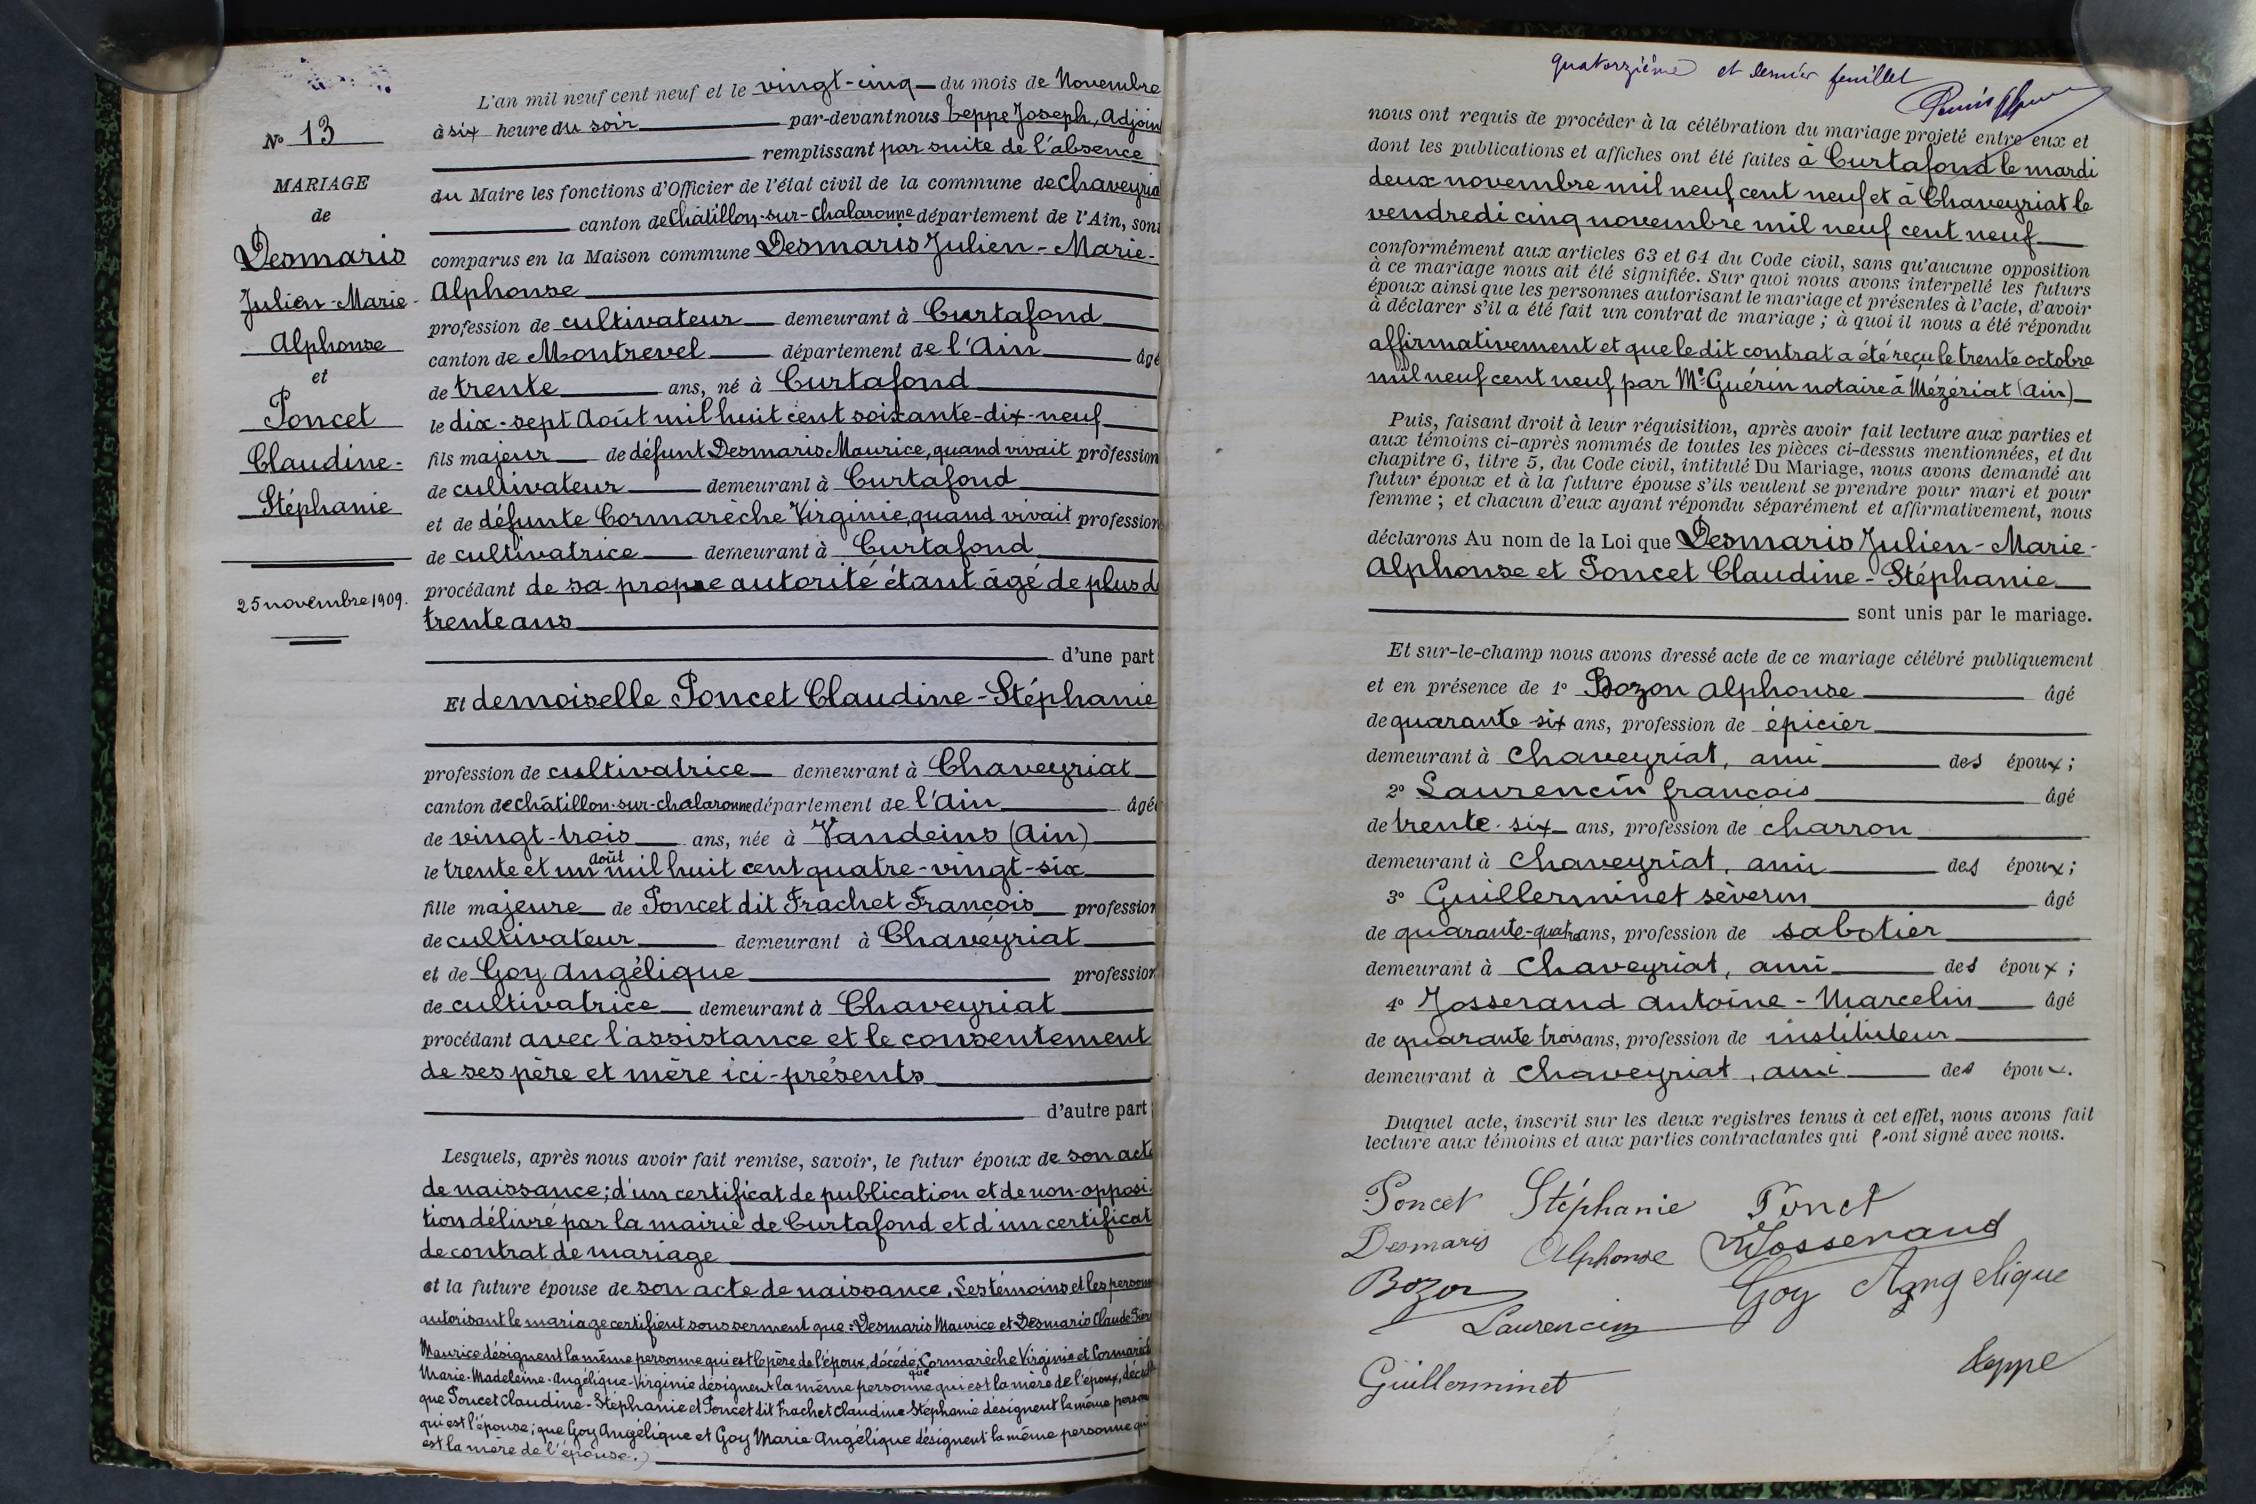 N° 13
MARIAGE
de
Desmaris
Julien-Marie-
Alphonse
et
Poncet
Claudine-
Stéphanie
25 novembre 1909.
L'an mil neuf cent neuf et le vingt-cinq du mois de Novembre
à six heure du soir par-devant nous Teppe Joseph, Adjoin
remplissant par suite de l'absence
du Maire les fonctions d'Officier de l'état civil de la commune de Chaveyria
canton de Châtillon-sur-Chalaronne département de l'Ain, son
comparus en la Maison commune Desmaris Julien-Marie-
Alphonse
profession de cultivateur demeurant à Curtafond
canton de Montrevel département de l'Ain âgé
de trente ans, né à Curtafond
le dix-sept Août mil huit cent soixante-dix-neuf
fils majeur de défunt Desmaris Maurice, quand vivait profession
de cultivateur demeurant à Curtafond
et de défunte Cormarèche Virginie, quand vivait profession
de cultivatrice demeurant à Curtafond
procédant de sa propre autorité étant âgé de plus d
trente ans
d'une part
Et demoiselle Poncet Claudine-Stéphanie
profession de cultivatrice demeurant à Chaveyriat
canton de Châtillon-sur-chalaronne département de l'Ain âgé
de vingt-trois ans, née à Vandeins (Ain)
le trente et un août mil huit cent quatre-vingt-six
fille majeure de Poncet dit Frachet François profession
de cultivateur demeurant à Chaveyriat
et de Goy Angélique profession
de cultivatrice demeurant à Chaveyriat
procédant avec l'assistance et le consentement
de ses père et mère ici-présents
d'autre part;
Lesquels, après nous avoir fait remise, savoir, le futur époux de son acte
de naissance; d'un certificat de publication et de non-opposi-
tion délivré par la mairie de Curtafond et d'un certificat
de contrat de mariage
et la future épouse de son acte de naissance. Les témoins et les person
autorisant le mariage certifient sous serment que: Desmaris Maurice et Desmaris Claude Pier
Maurice désignent la même personne qui est le père de l'époux, décédé; Cormarèche Virginie et Cormarèch
Marie-Madeleine-Angélique-Virginie désignent la même personne qui est la mère de l'époux, décéd
que Poncet Claudine-Stéphanie et Poncet dit Frachet Claudine-Stéphanie désignent la même person
qui est l'épouse; que Goy Angélique et Goy Marie Angélique désignent la même personne qui
est la mère de l'épouse.)
quatorzième et dernier feuillet
nous ont requis de procéder à la célébration du mariage projeté entre eux et
dont les publications et affiches ont été faites à Curtafond le mardi
deux novembre mil neuf cent neuf et à Chaveyriat le
vendredi cinq novembre mil neuf cent neuf
conformément aux articles 63 et 64 du Code civil, sans qu'aucune opposition
à ce mariage nous ait été signifiée. Sur quoi nous avons interpellé les futurs
époux ainsi que les personnes autorisant le mariage et présentes à l'acte, d'avoir
à déclarer s'il a été fait un contrat de mariage; à quoi il nous a été répondu
affirmativement et que le dit contrat a été reçu le trente octobre
mil neuf cent neuf par Me Guérin notaire à Mézériat (Ain)
Puis, faisant droit à leur réquisition, après avoir fait lecture aux parties et
aux témoins ci-après nommés de toutes les pièces ci-dessus mentionnées, et du
chapitre 6, titre 5, du Code civil, intitulé Du Mariage, nous avons demandé au
futur époux et à la future épouse s'ils veulent se prendre pour mari et pour
femme; et chacun d'eux ayant répondu séparément et affirmativement, nous
déclarons Au nom de la Loi que Desmaris Julien-Marie-
Alphonse et Poncet Claudine-Stéphanie
sont unis par le mariage.
Et sur-le-champ nous avons dressé acte de ce mariage célébré publiquement
et en présence de 1° Bozon Alphonse âgé
de quarante six ans, profession de épicier
demeurant à Chaveyriat, ami des époux;
2° Laurencin françois âgé
de trente-six ans, profession de charron
demeurant à Chaveyriat, ami des époux;
3° Guillerminet sèverin âgé
de quarante-quatre ans, profession de sabotier
demeurant à Chaveyriat, ami des époux;
4° Josserand Antoine-Marcelin âgé
de quarante trois ans, profession de instituteur
demeurant à Chaveyriat, ami des époux.
Duquel acte, inscrit sur les deux registres tenus à cet effet, nous avons fait
lecture aux témoins et aux parties contractantes qui l'ont signé avec nous.
Poncet Stéphanie Poncet
Desmaris Alphonse Josserand
Bozon Goy Angelique
Laurencin
Guillerminet Teppe